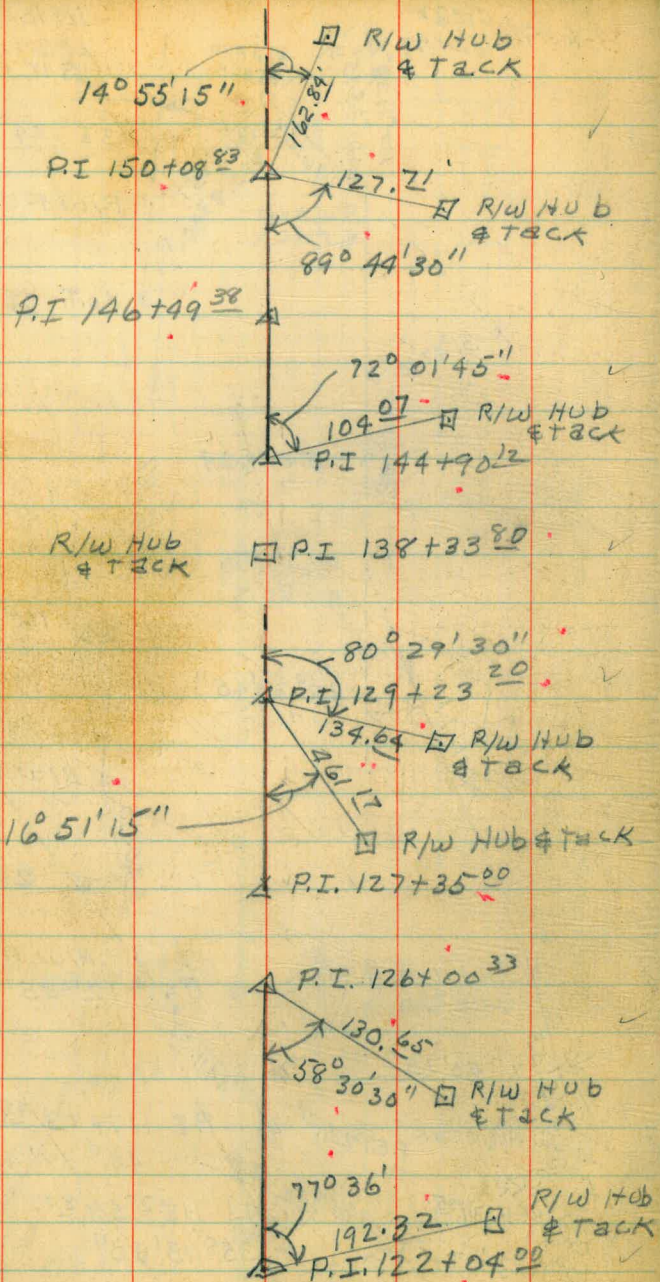 R/W Hub
& Tack
14° 55' 15"
162.84'
P.I 150+08 83
127.71'
R/W Hub
& Tack
89° 44' 30"
P.I 146+49 38
72° 01' 45"
104 07
R/W Hub
& Tack
P.I 144+90 12
R/W Hub
& Tack
P.I 138+33 80
80° 29' 30"
P.I 129+23 20
134.64
R/W Hub
& Tack
461 17
16° 51' 15"
R/W Hub & Tack
P.I. 127+35 00
P.I. 126+00 33
130.65
58° 30' 30"
R/W Hub
& Tack
77° 36'
R/W Hub
& Tack
192.32
P.I. 122+04 00